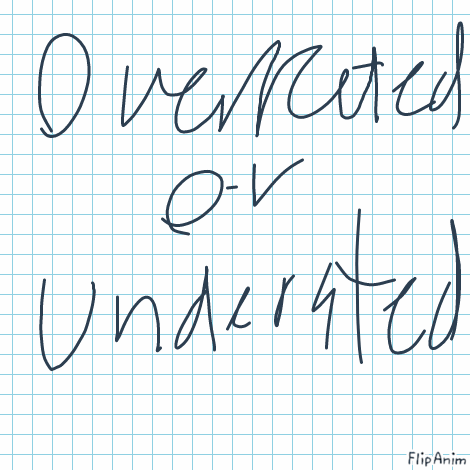 Overrated
or
Underrated
FlipAnim